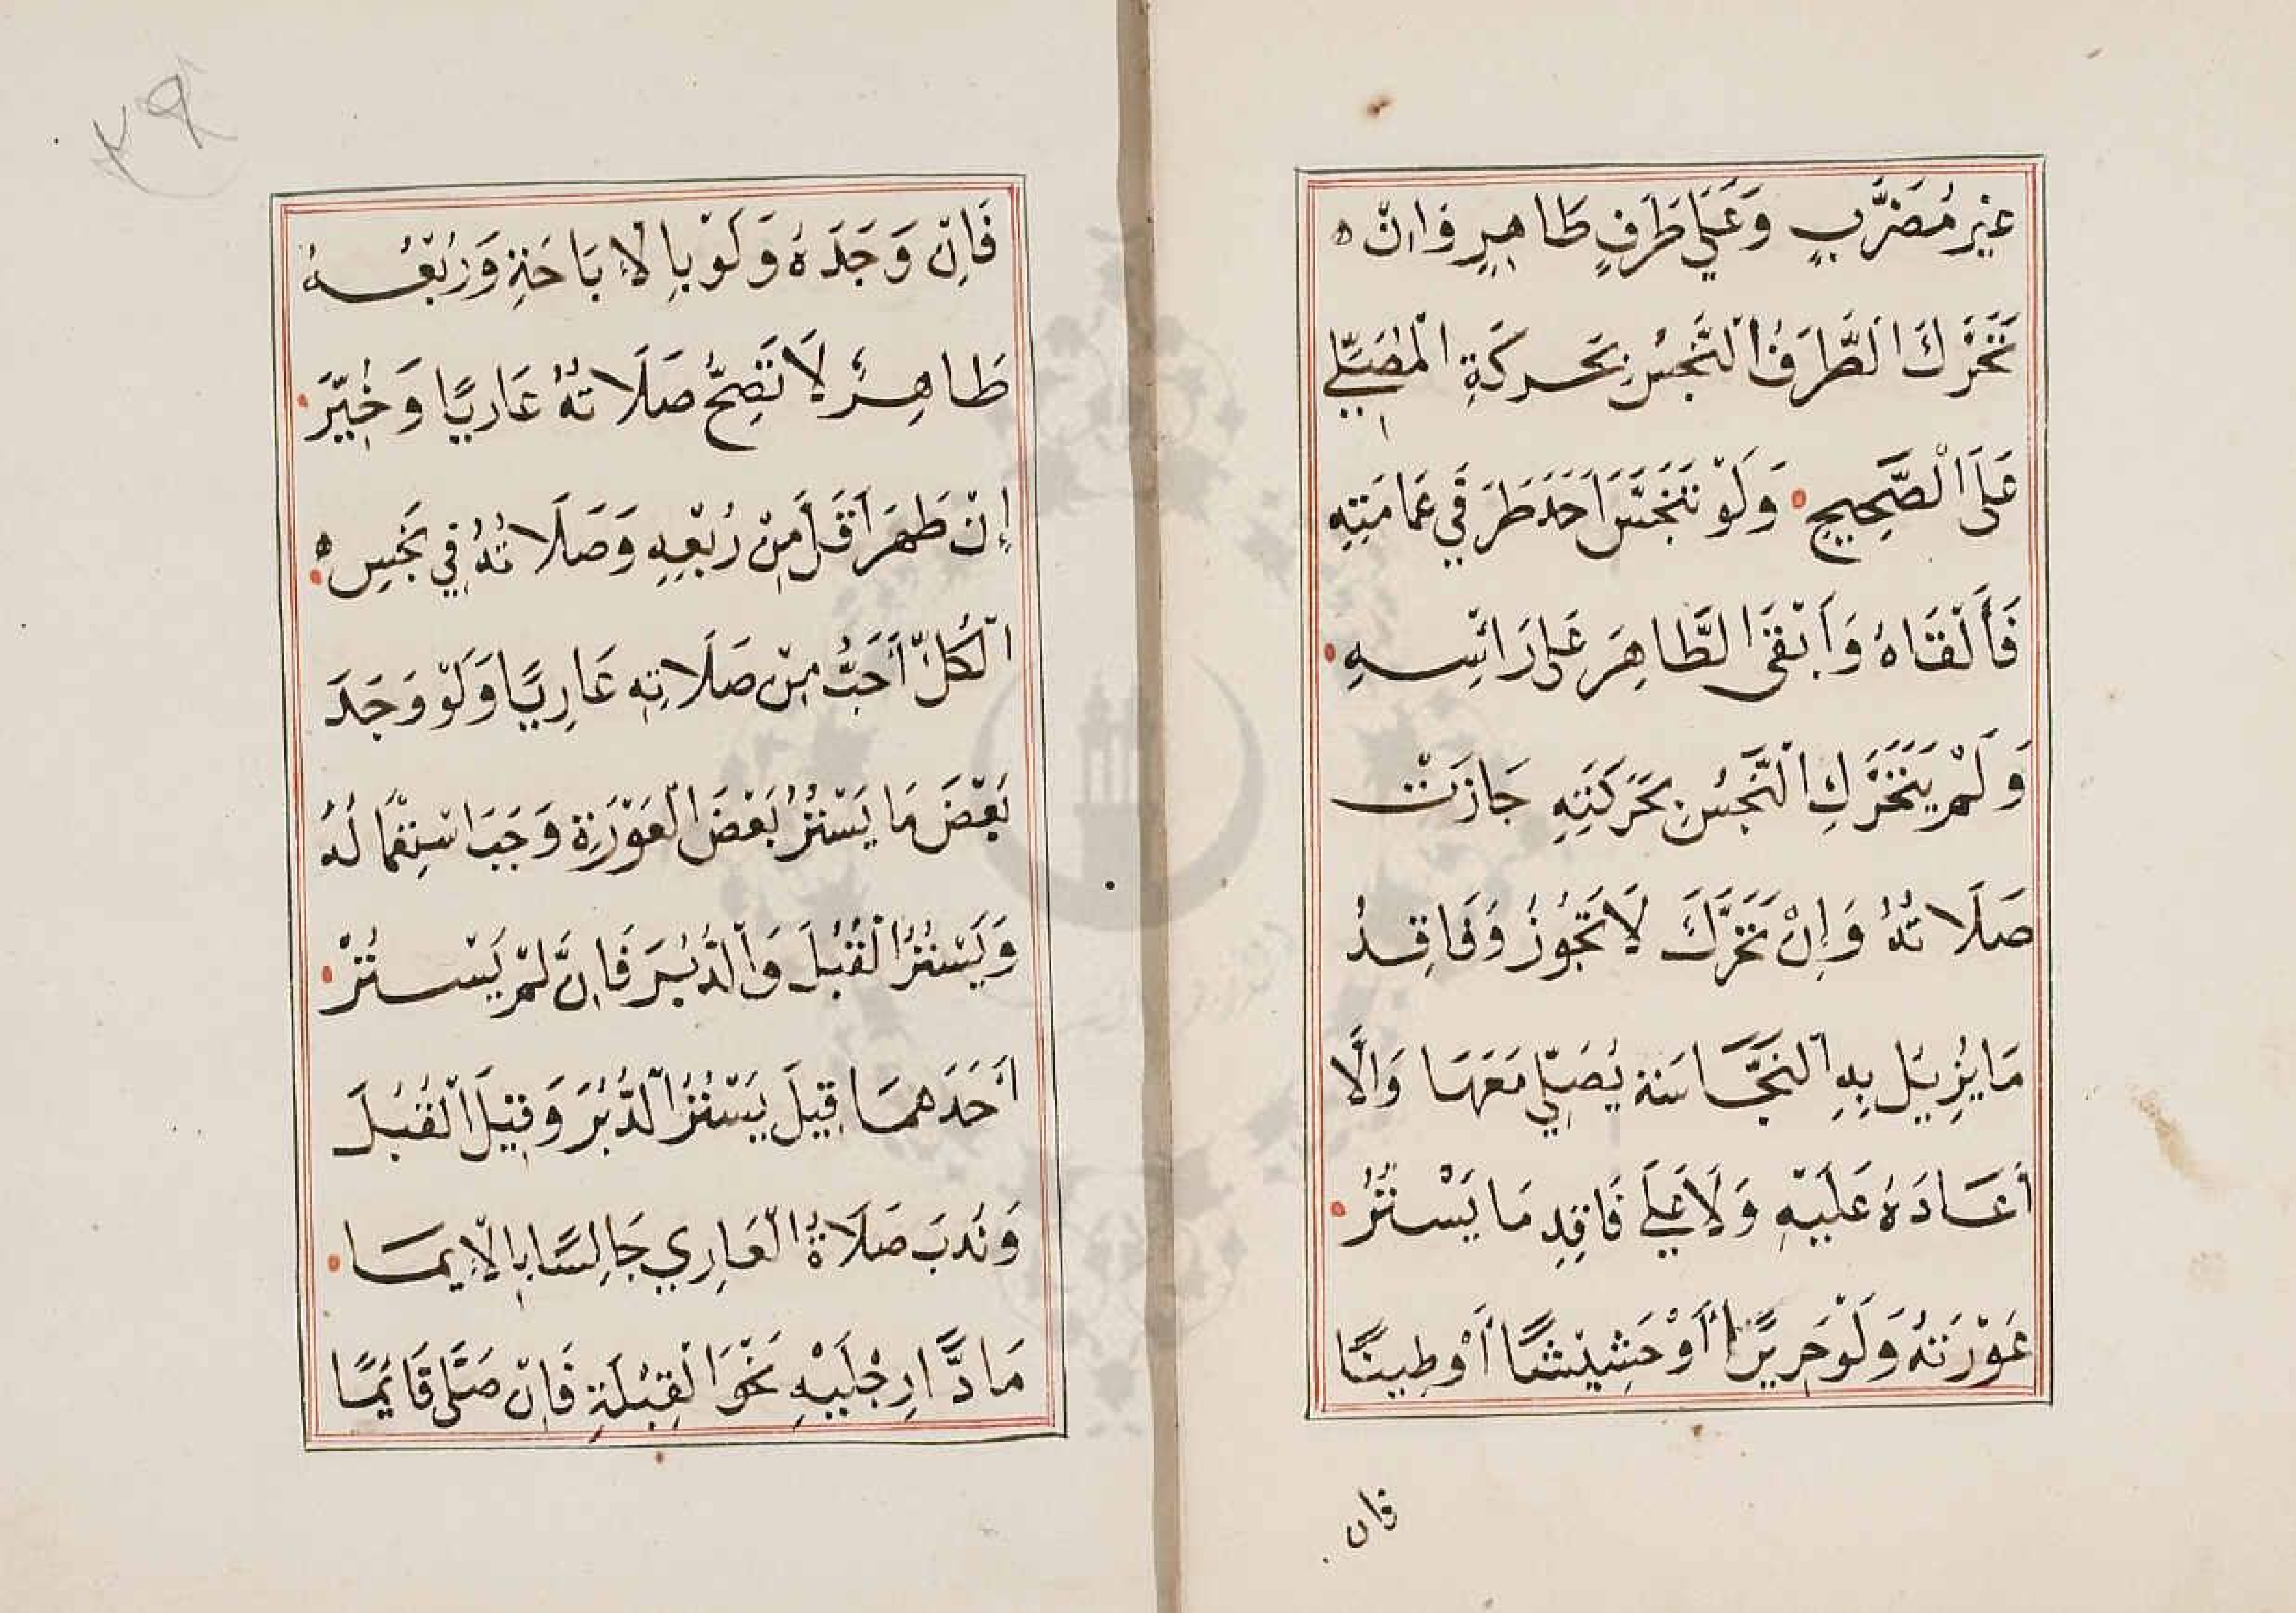 غَيْرِ مُضَرَّبٍ وَعَلَي طَرَفٍ طَاهِرٍ وَاِنْ ه
تَحَرَّكَ الطَّرَفُ النَّجِسُ بِحَرَكَةِ الْمُصَلِّي
عَلَي الصَّحِيحِ وَلَوْ تَنَجَّسَ اَحَدَ طَرَفَي عَمَامَتِهِ
فَأَلْقَاهُ وَاَبْقَى الطَّاهِرَ عَلَي رَاْسِهِ
وَلَمْ يَتَحَرَّكِ النَّجِسُ بِحَرَكَتِهِ جَازَتْ
صَلَاتُهُ وَاِنْ تَحَرَّكَ لَا تَجُوزُ وَفَاقِدُ
مَا يُزِيْل بِهِ النَّجَّاسَة يُصَلِّي مَعَهَا وَالَّا
اَعَادَهُ عَلَيْهِ وَلَا عَلَي فَاقِدِ مَا يَسْتُرُ
عَوْرَتَهُ وَلَوْ حَرِيرًا أَوْ حَشِيْشًا أَوْ طِينًا
فان
٢٩
فَاِنْ وَجَدَهُ وَلَوْ بِالْاِبَاحَةِ وَرُبْعُهُ
طَاهِرٌ لَا تَصِحُّ صَلَاتُهُ عَارِيًا وَخُيِّرَ
اِنْ طَهُرَ اَقَلَ مِنْ رُبْعِهِ وَصَلَاتُهُ فِي نَجِسِ ه
الْكُلِّ أَحَبُّ مِنْ صَلَاتِهِ عَارِيًا وَلَوْ وَجَدَ
بَعْضَ مَا يَسْتُرُ بَعْضَ الْعَوْرَةِ وَجَبَ اسْتِعْمَالُهُ
وَيَسْتُرُ الْقُبُلَ وَالدُّبُرَ فَاِنَّ لَمْ يَسْتُرْ
اَحَدَهمَا قِيلَ يَسْتُرُ الدُّبُرَ وَقِيْلَ الْقُبُلَ
وَنُدِبَ صَلَاةُ الْعَارِي جَالِسًا بِالْاِيمَا
مَادًّا رِجْلَيْهِ نَحْوَ الْقِبْلَةِ فَاِنْ صَلَّى قَائِمًا